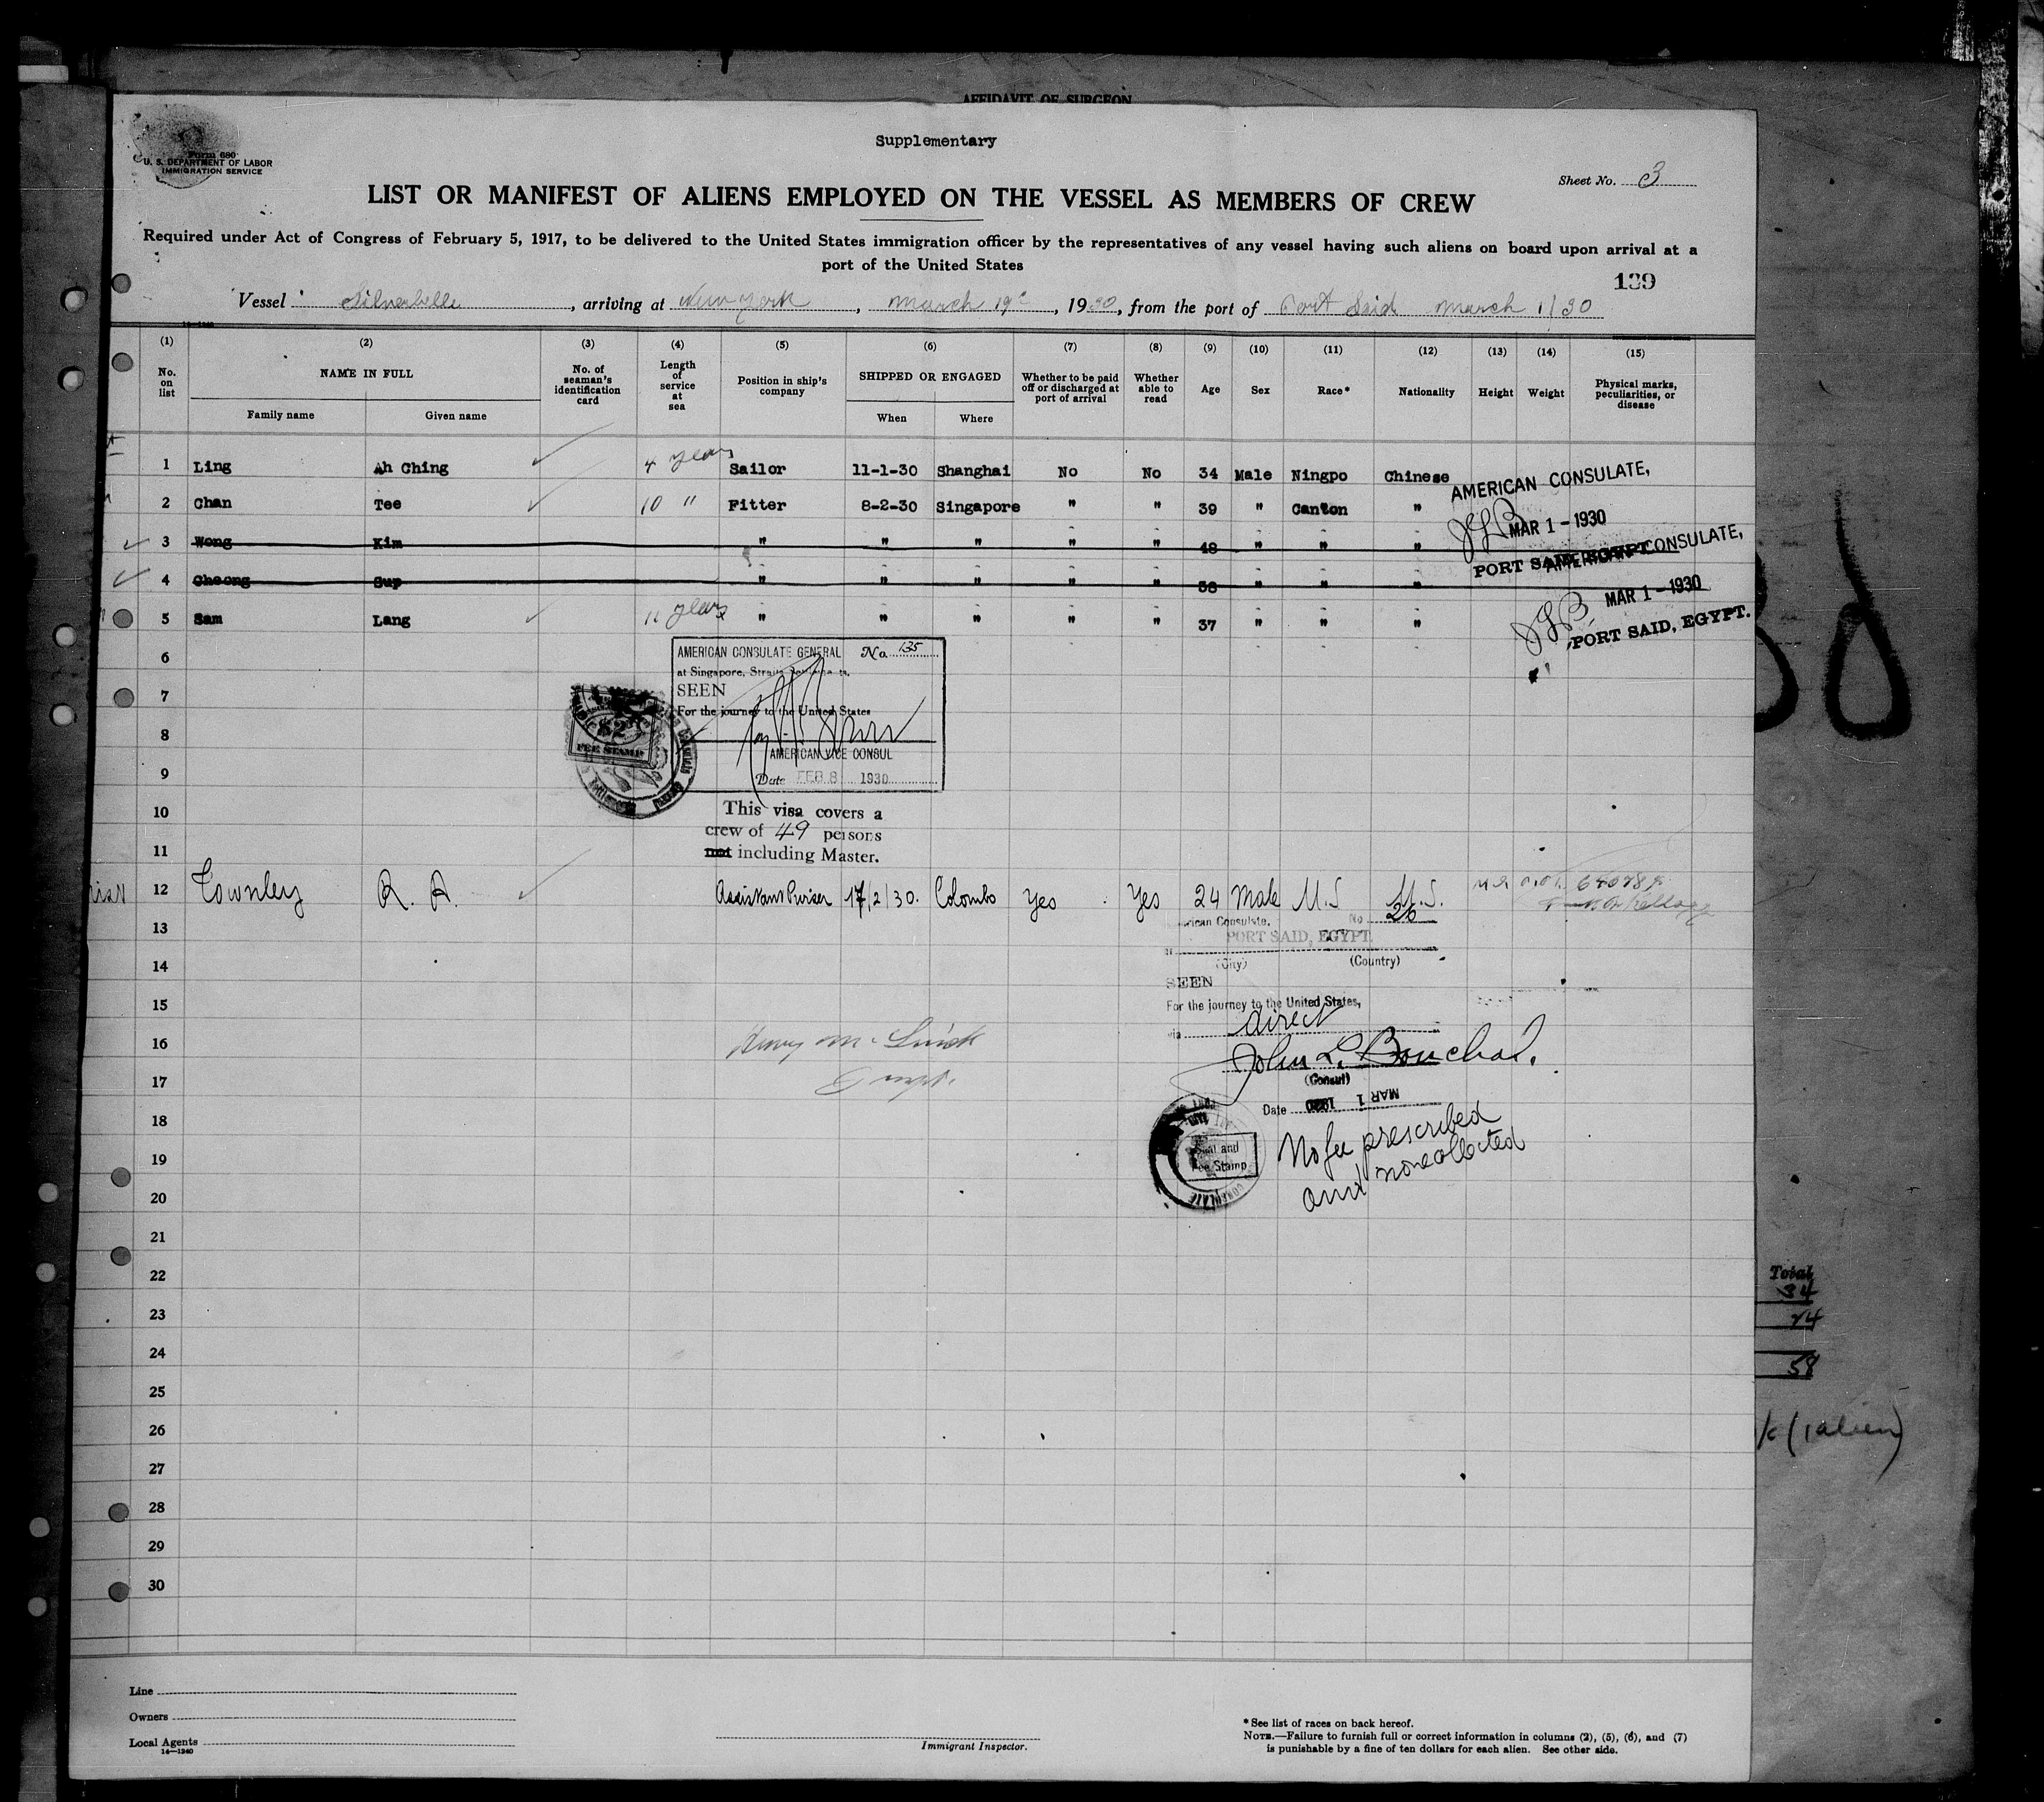 AFFIDAVIT OF SURGEON
Supplementary
Form 680
U. S. DEPARTMENT OF LABOR
IMMIGRATION SERVICE
Sheet No. 3
LIST OR MANIFEST OF ALIENS EMPLOYED ON THE VESSEL AS MEMBERS OF CREW
Required under Act of Congress of February 5, 1917, to be delivered to the United States immigration officer by the representatives of any vessel having such aliens on board upon arrival at a
port of the United States
139
Vessel Silverbelle, arriving at New York, March 19, 1930, from the port of Port Said March 1/30
(1) (2) (3) (4) (5) (6) (7) (8) (9) (10) (11) (12) (13) (14) (15)
No. on list NAME IN FULL No. of seaman's identification card Length of service at sea Position in ship's company SHIPPED OR ENGAGED Whether to be paid off or discharged at port of arrival Whether able to read Age Sex Race* Nationality Height Weight Physical marks, peculiarities, or disease
Family name Given name When Where
1 Ling Ah Ching 4 years Sailor 11-1-30 Shanghai No No 34 Male Ningpo Chinese
2 Chan Tee 10 " Fitter 8-2-30 Singapore " " 39 " Canton "
3 Wong Kim " " " " " 48 " " "
4 Cheong Sup " " " " " 38 " " "
5 Sam Lang 11 years " " " " " 37 " " "
AMERICAN CONSULATE,
JLB MAR 1 - 1930
PORT SAID, EGYPT.
AMERICAN CONSULATE,
JLB MAR 1 - 1930
PORT SAID, EGYPT.
6
7
8
9
10
11
AMERICAN CONSULATE GENERAL No. 135
at Singapore, Straits Settlements.
SEEN
For the journey to the United States
AMERICAN VICE CONSUL
Date FEB 8 1930
$2
FEE STAMP
This visa covers a
crew of 49 persons
not including Master.
12 Townley R. A. Assistant Purser 17/2/30. Colombo Yes Yes 24 Male U.S. U.S.
13
14
15
16
17
18
19
20
21
22
23
24
25
26
27
28
29
30
American Consulate, No. 26
at PORT SAID, EGYPT.
(City) (Country)
SEEN
For the journey to the United States,
via direct
John L. Bouchal.
(Consul)
Date MAR 1 1930
Seal and
Fee Stamp
No fee prescribed
and none collected
Total
34
24
58
(1 alien)
Line
Owners
Local Agents
14—1240
Immigrant Inspector.
* See list of races on back hereof.
NOTE.—Failure to furnish full or correct information in columns (2), (5), (6), and (7)
is punishable by a fine of ten dollars for each alien. See other side.